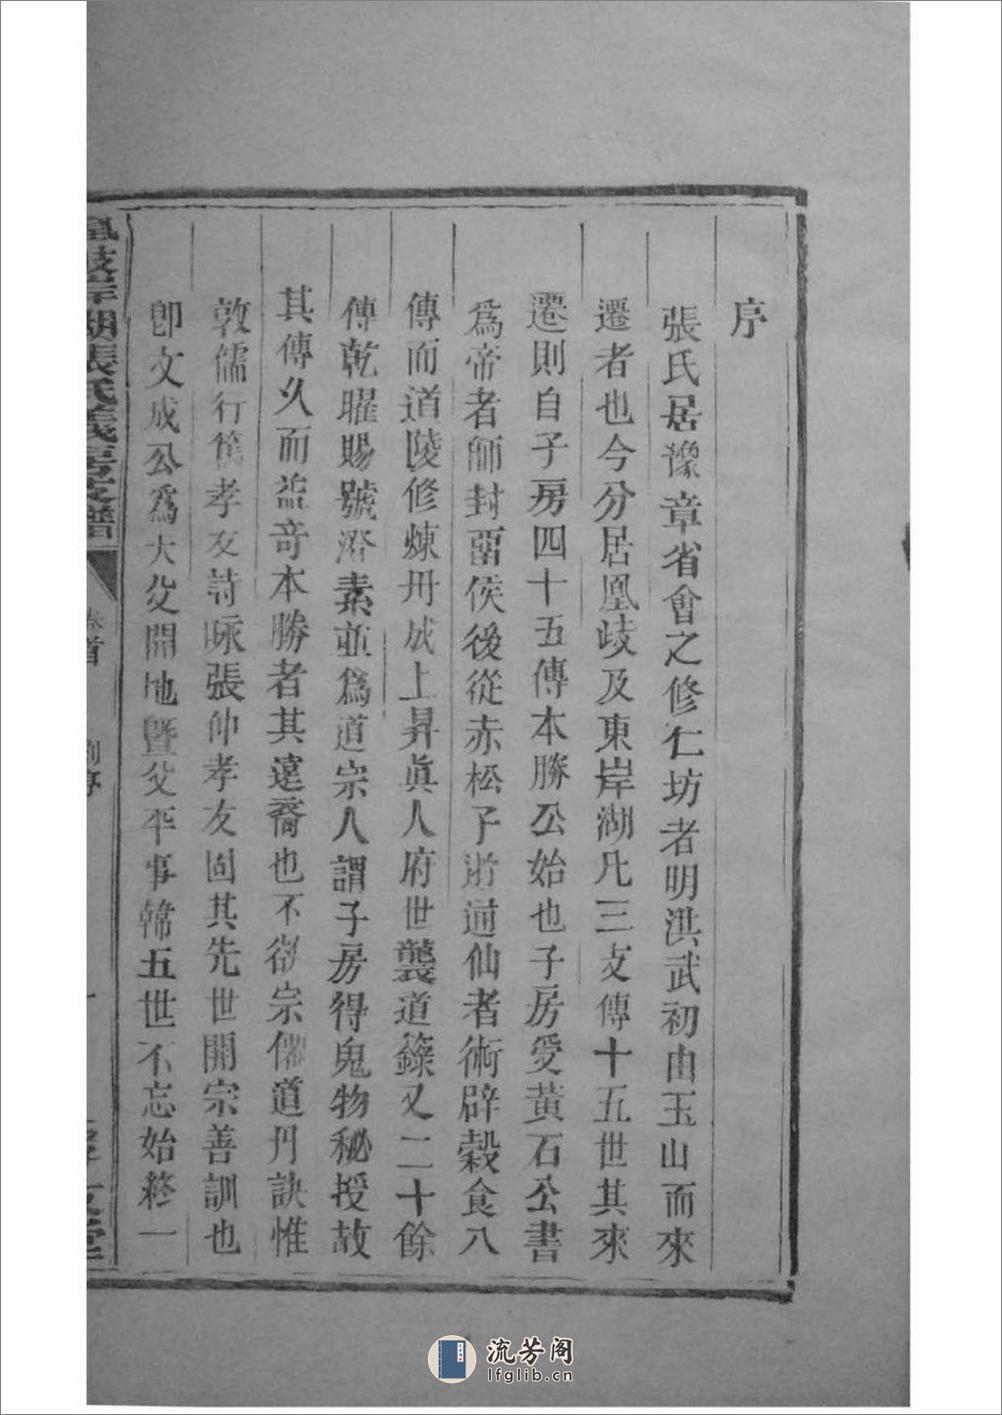 序
張氏居豫章省會之修仁坊者明洪武初由玉山而來
遷者也今分居凰岐及東岸湖凡三支傳十五世其來
遷則自子房四十五傳本勝公始也子房受黃石公書
爲帝者師封畱侯後從赤松子游通仙者術辟穀食八
傳而道陵修煉丹成上昇眞人府世襲道籙又二十餘
傳乾曜賜號澄素並爲道宗人謂子房得鬼物秘授故
其傳久而益奇本勝者其遠裔也不欲宗儒道丹訣惟
敦儒行篤孝友詩咏張仲孝友固其先世開宗善訓也
卽文成公爲大父開地曁父平事韓五世不忘始終一
凰岐岸湖張氏義房支譜
卷首
流芳阁
lfglib.cn